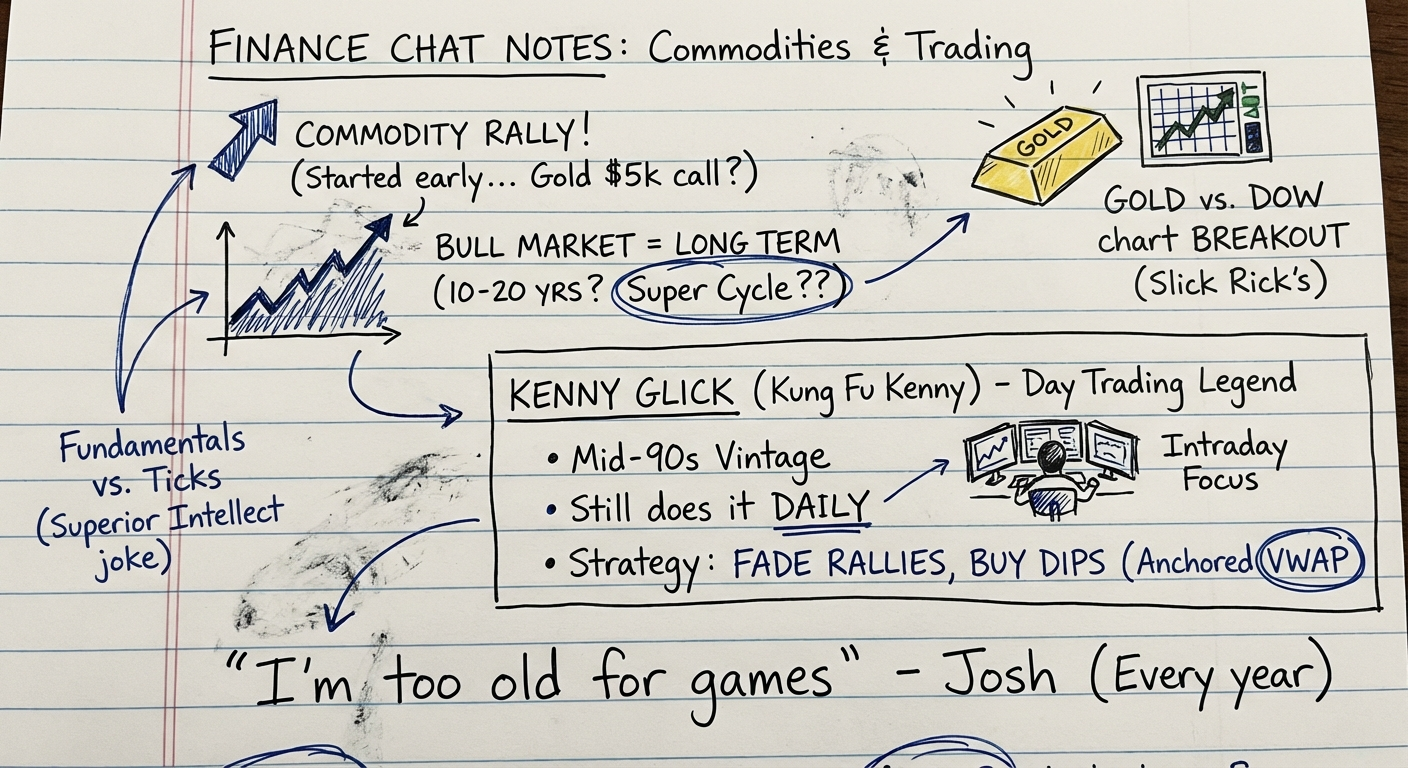 FINANCE CHAT NOTES: Commodities & Trading
COMMODITY RALLY!
(Started early... Gold $5k call?)
BULL MARKET = LONG TERM
(10-20 YRS? Super Cycle??)
GOLD
GOLD vs. DOW
chart BREAKOUT
(Slick Rick's)
Fundamentals
vs. Ticks
(Superior Intellect
joke)
KENNY GLICK (Kung Fu Kenny) - Day Trading Legend
• Mid-90s Vintage
• Still does it DAILY
Intraday
Focus
• Strategy: FADE RALLIES, BUY DIPS (Anchored VWAP)
"I'm too old for games" - Josh (Every year)